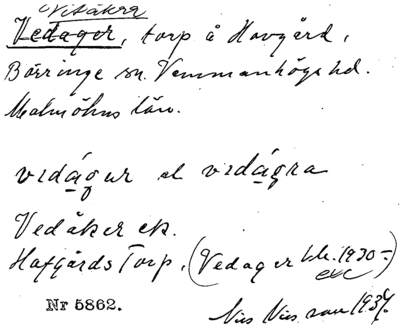 Vitåkra
Vedager, torp å Havgård,
Börringe sn. Vemmenhögs hd.
Malmöhus län.
vɪdágər el vɪdágra
Vedåker ek.
Hafgårds Torp, (Vedager bl. 1930-
evc
Nr 5862.
Nils Nilsson 1937.